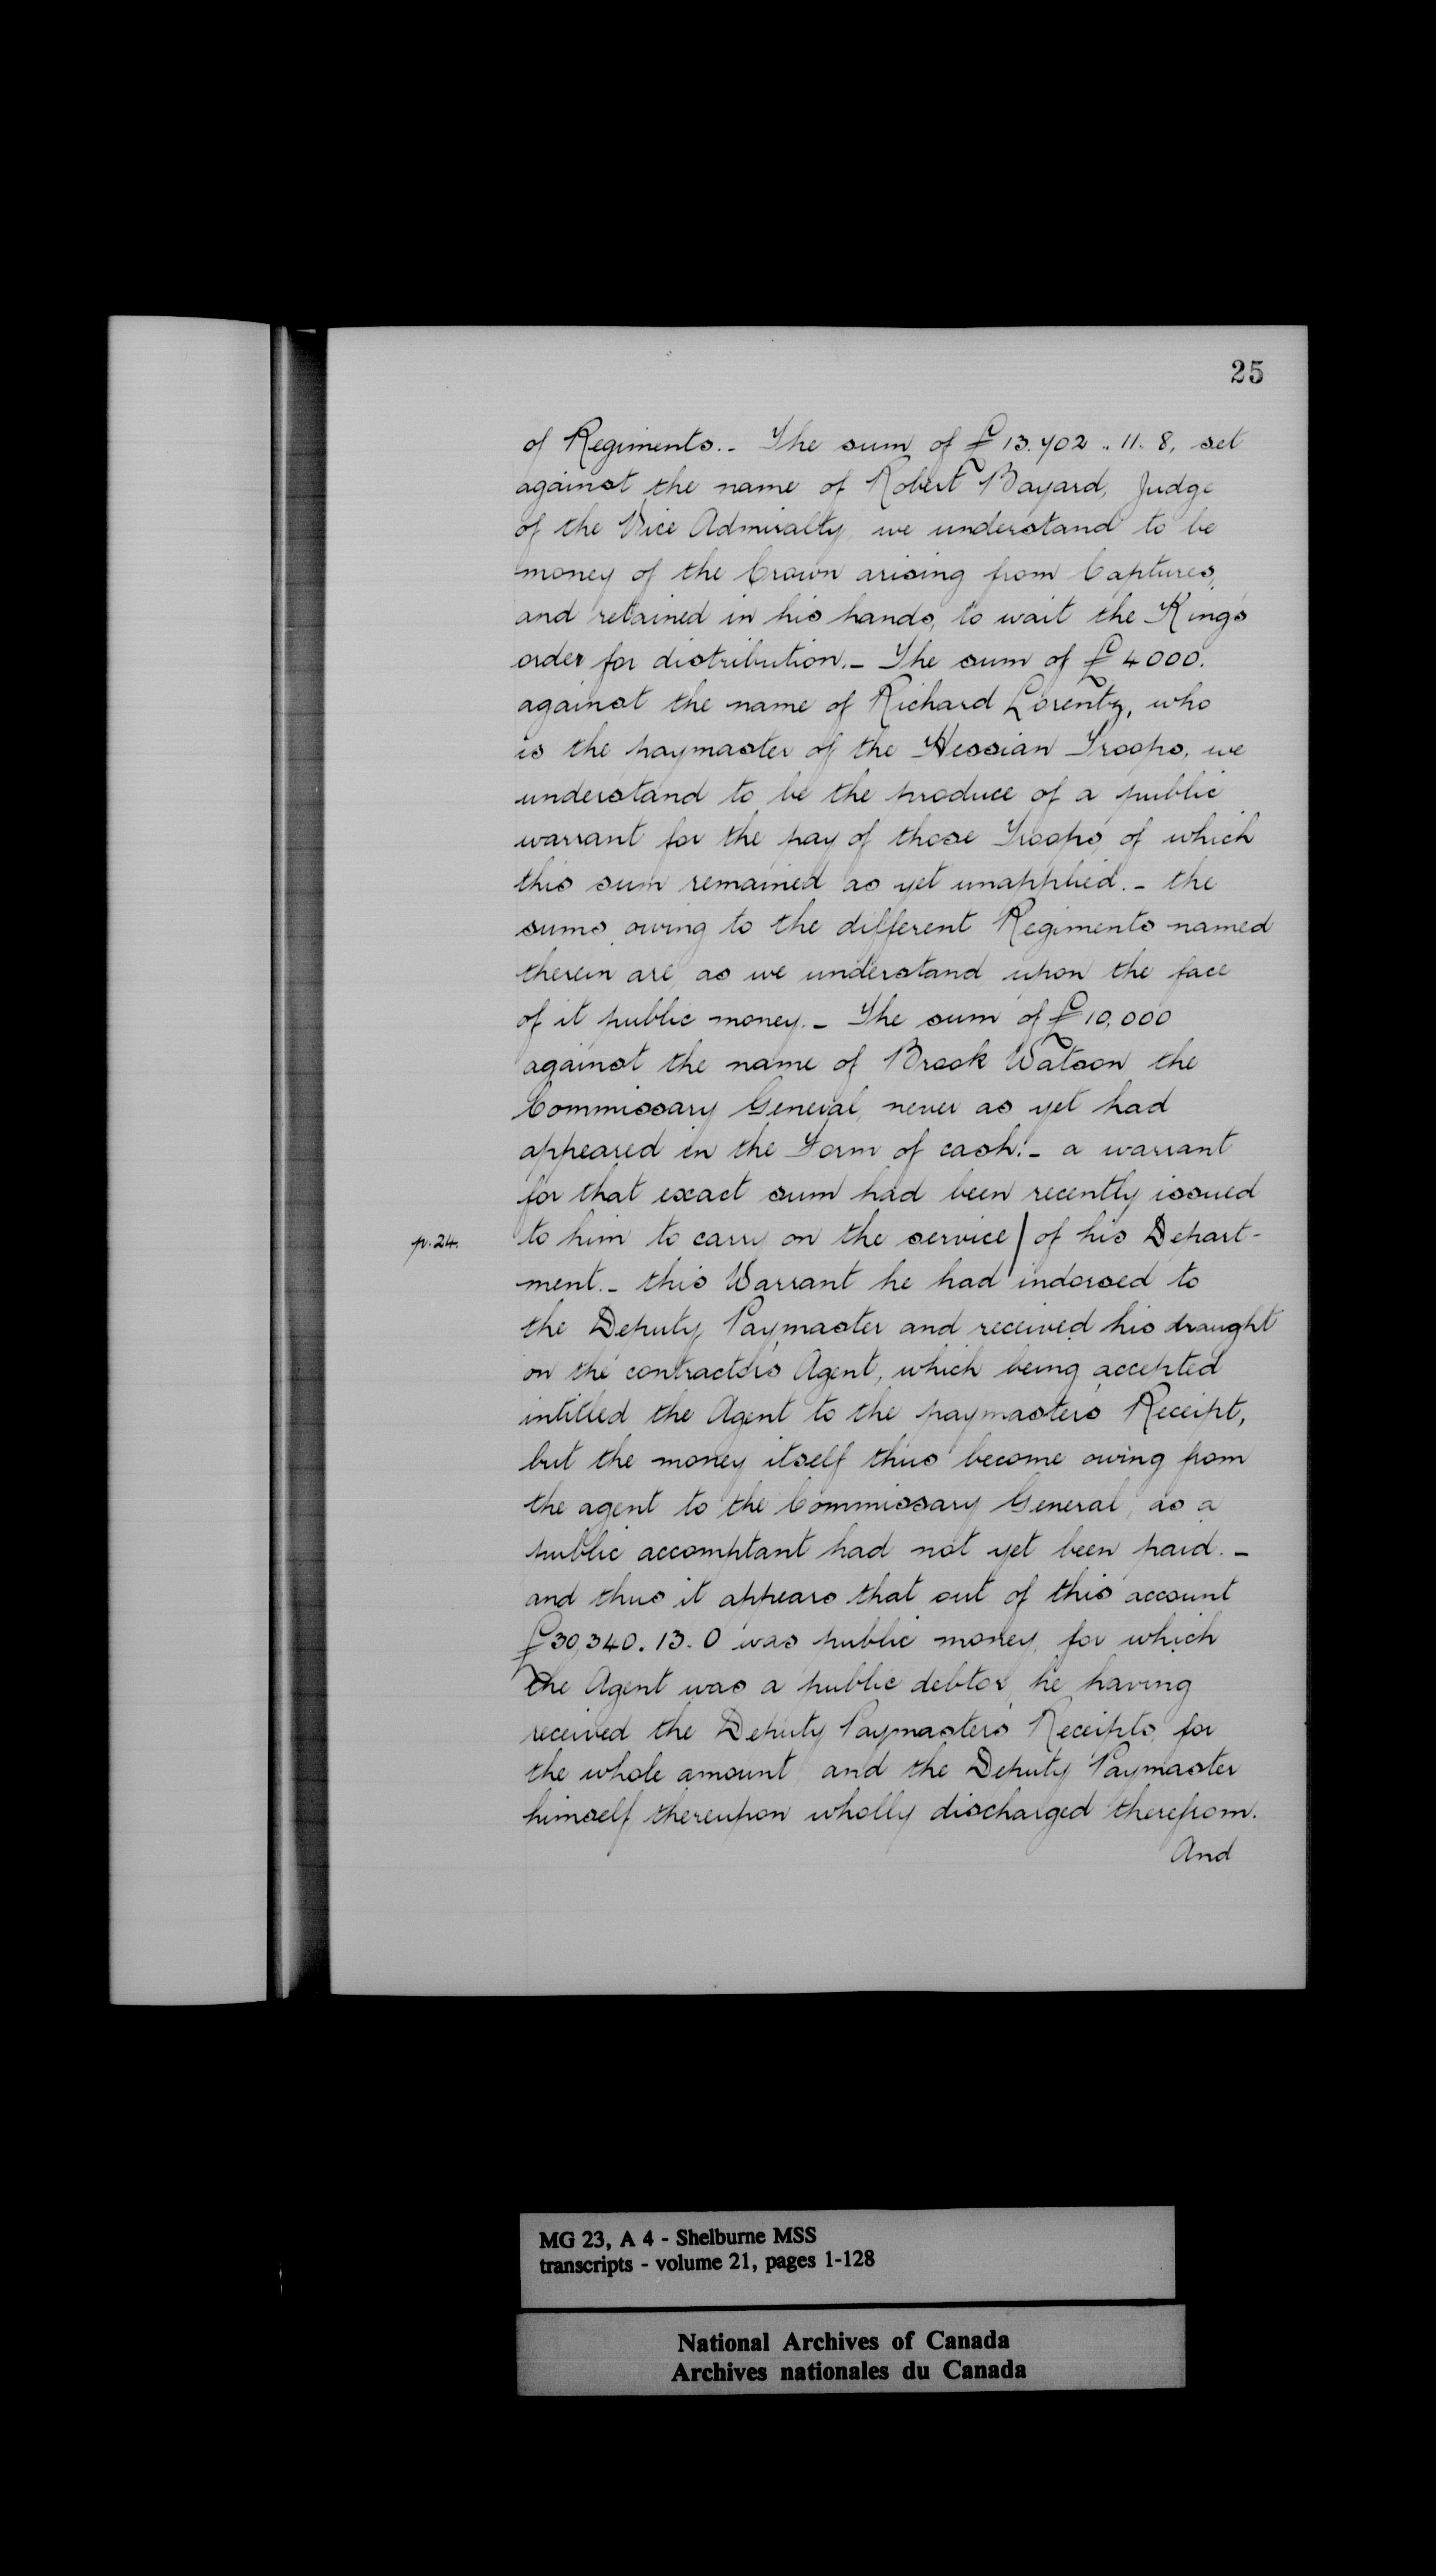 25
of Regiments.- The sum of £13.702..11.8, set
against the name of Robert Bayard, Judge
of the Vice Admiralty we understand to be
money of the Crown arising from Captures,
and retained in his hands, to wait the King's
order for distribution.- The sum of £4000.
against the name of Richard Lorentz, who
is the paymaster of the Hessian Troops, we
understand to be the produce of a public
warrant for the pay of those Troops, of which
this sum remained as yet unapplied.- the
sums owing to the different Regiments named
therein are, as we understand upon the face
of it public money.- The sum of £10,000
against the name of Brook Watson the
Commissary General, never as yet had
appeared in the Form of cash:- a warrant
for that exact sum had been recently issued
p.24. to him to carry on the service | of his Depart-
ment.- this Warrant he had indorsed to
the Deputy Paymaster and received his draught
on the contractors Agent, which being accepted
intitled the Agent to the paymaster's Receipt,
but the money itself thus become owing from
the agent to the Commissary General, as a
public accomptant had not yet been paid.-
and thus it appears that out of this account
£30,340.13.0 was public money, for which
the Agent was a public debtor, he having
received the Deputy Paymaster's Receipts, for
the whole amount, and the Deputy Paymaster
himself, thereupon wholly discharged therefrom.
And
MG 23, A 4 - Shelburne MSS
transcripts - volume 21, pages 1-128
National Archives of Canada
Archives nationales du Canada